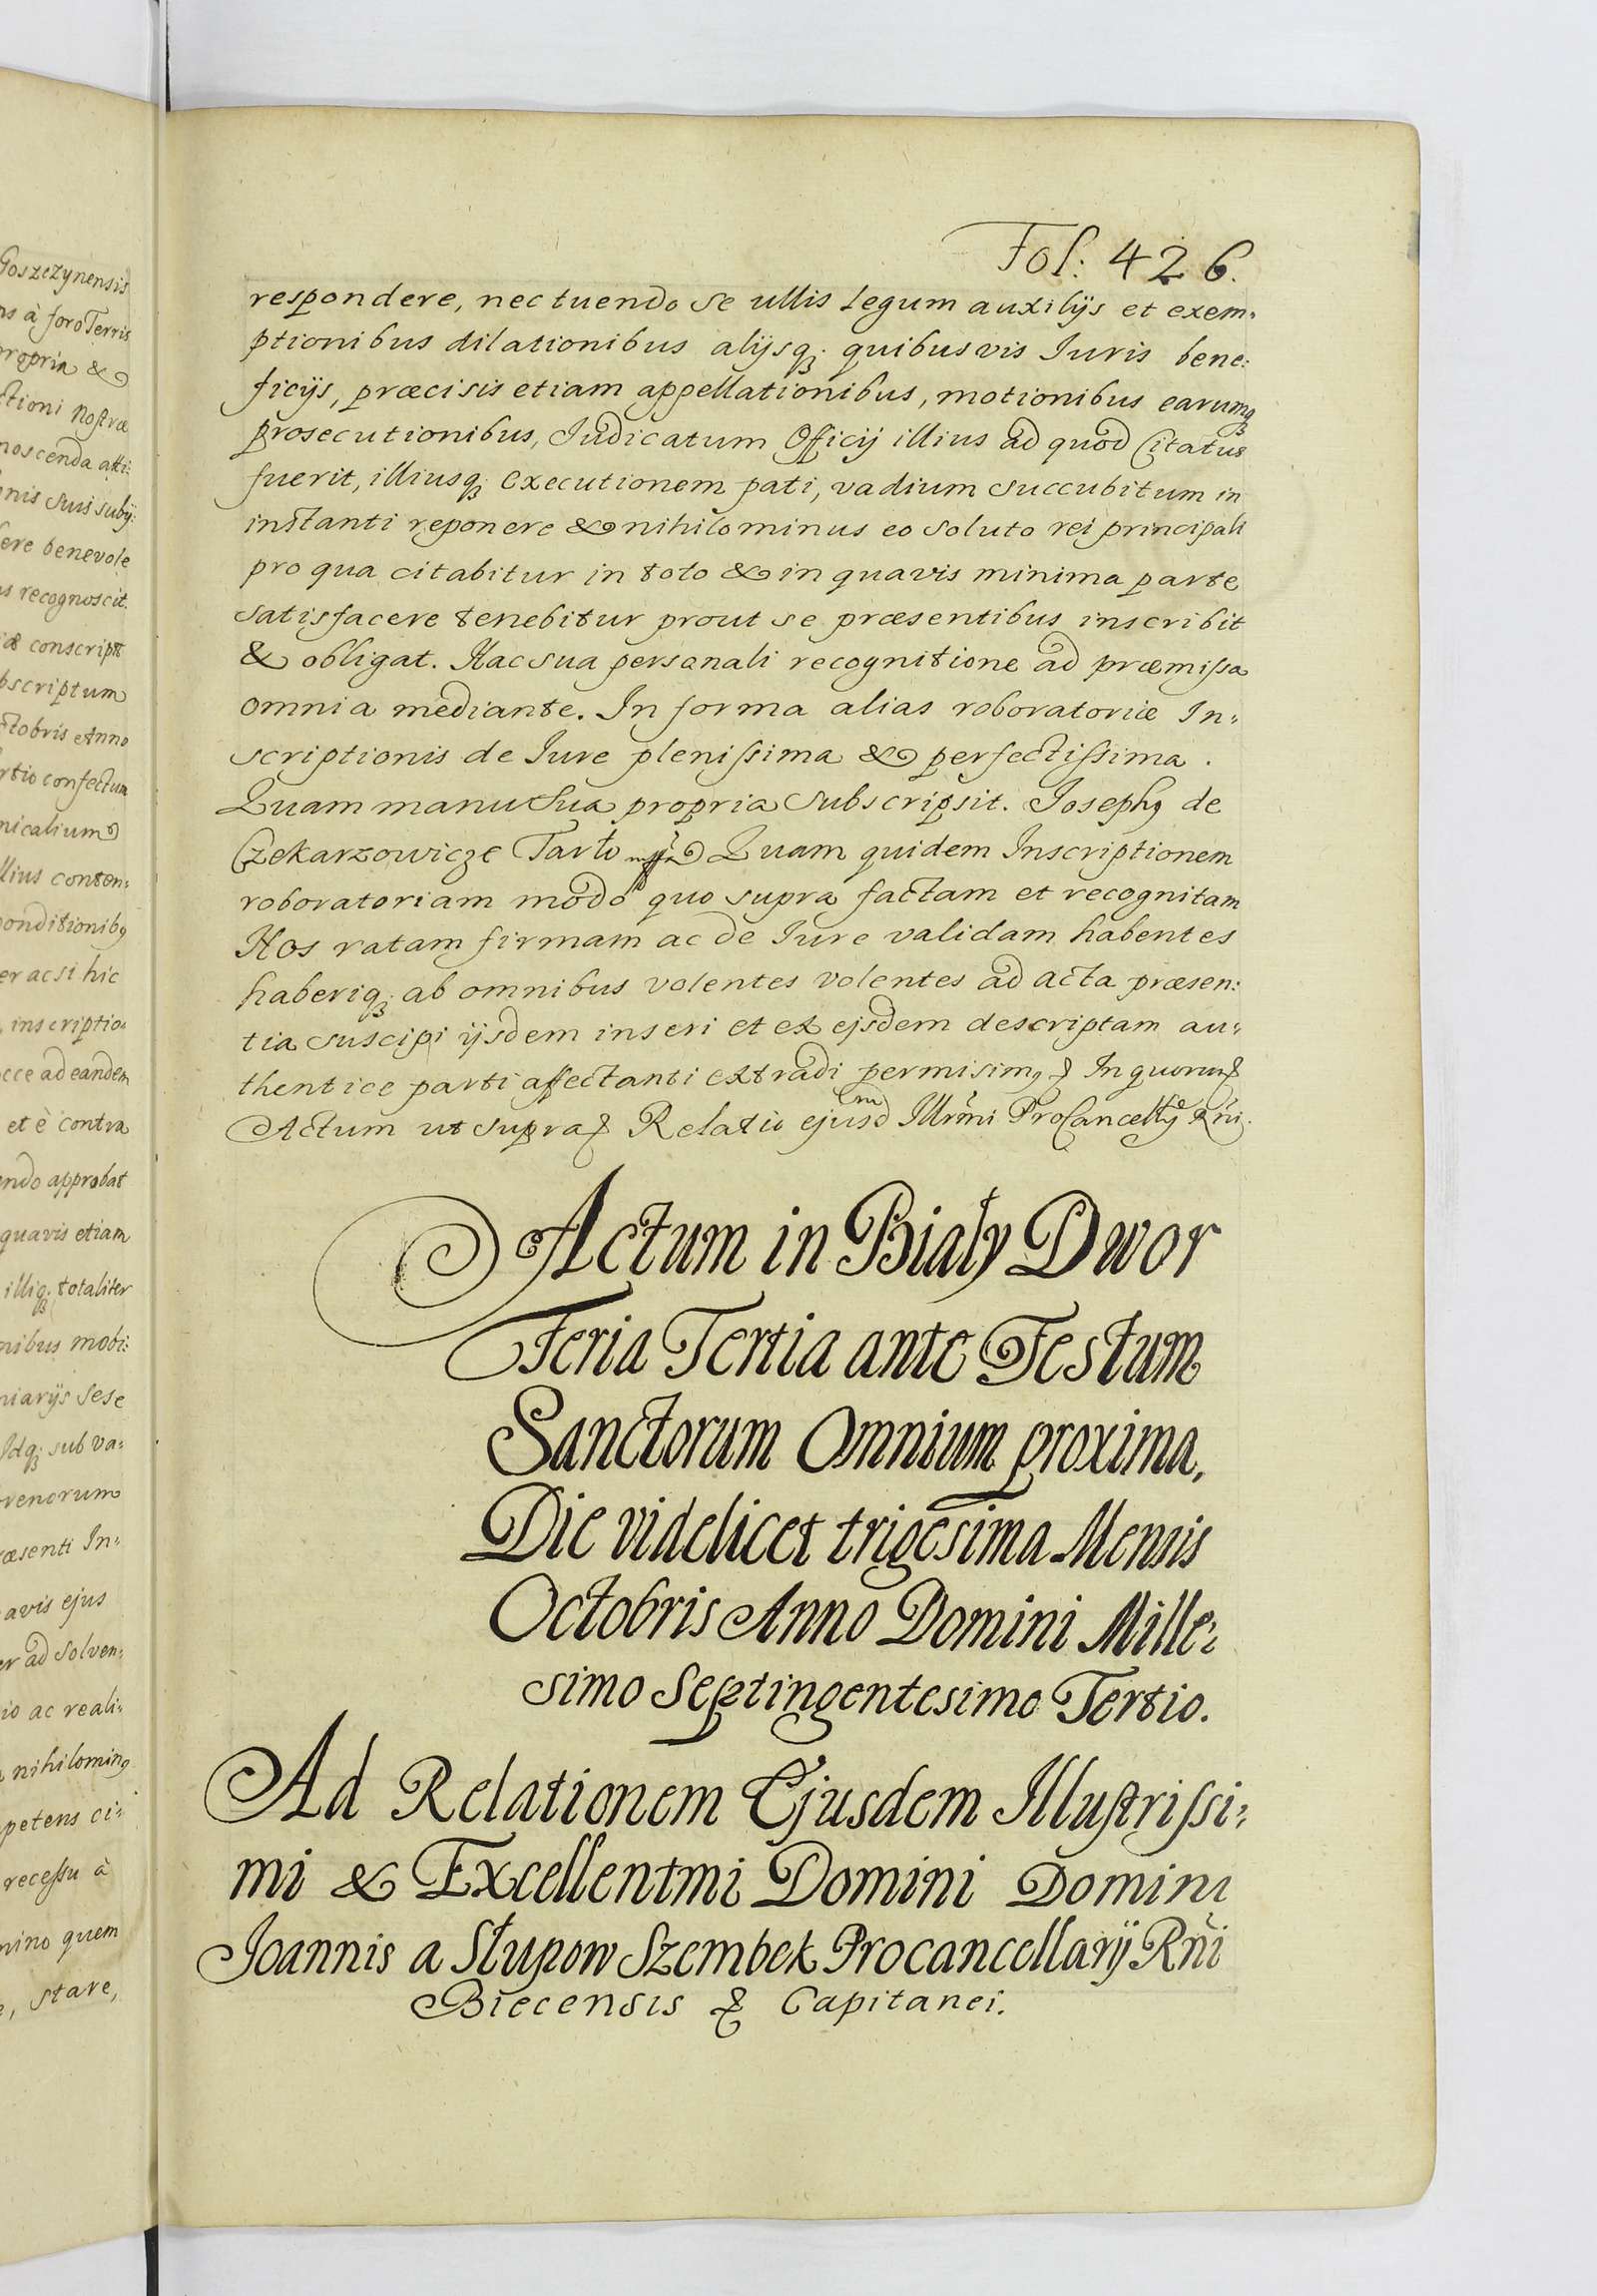 Goszczynensis
ns à foro Terris
propria &
ctioni nostræ
noscenda atti:
nis suis subij:
ere benevole
s recognoscit.
conscript
bscriptum
ctobris Anno
rtio confectum
nicalium
llius conten:
onditionibq
er ac si hic
inscriptio:
cce ad eandem
et è contra
endo approbat
quavis etiam
illiq; totaliter
nibus mobi:
niarijs sese
Idq; sub va:
renorum
æsenti In:
avis ejus
er ad solven:
io ac reali:
nihilominq
petens ci:
recessu à
mino quem
stare,
Fol: 426.
respondere, nec tuendo se ullis Legum auxilijs et exem:
ptionibus dilationibus alijsq; quibusvis Iuris bene:
ficijs, præcisis etiam appellationibus, motionibus earumq;
prosecutionibus, Iudicatum Officij illius ad quod Citatus
fuerit, illiusq; Executionem pati, vadium succubitum in
instanti reponere & nihilominus eo soluto rei principali
pro qua citabitur in toto & in quavis minima parte
satisfacere tenebitur prout se præsentibus inscribit
& obligat. Hac sua personali recognitione ad præmissa
omnia mediante. In forma alias roboratoriæ In:
scriptionis de Iure plenissima & perfectissima.
Quam manu sua propria subscripsit. Iosephq de
Czekarzowicze Tarło mpp Quam quidem Inscriptionem
roboratoriam modo quo supra factam et recognitam
Nos ratam firmam ac de Iure validam habentes
haberiq; ab omnibus volentes volentes ad acta præsen:
tia suscipi ijsdem inseri et ex ejsdem descriptam au:
thentice parti affectanti extradi permisimq & In quorum &
Actum ut supra & Relatio ejusd em Illrmi ProCancellrij Rni.
Actum in Biały Dwor
Feria Tertia ante Festum
Sanctorum Omnium proxima,
Die videlicet trigesima Mensis
Octobris Anno Domini Mille:
simo Septingentesimo Tertio.
Ad Relationem Ejusdem Illustrissi:
mi & Excellentmi Domini Domini
Joannis a Słupow Szembek Procancellarij Rni
Biecensis & Capitanei.